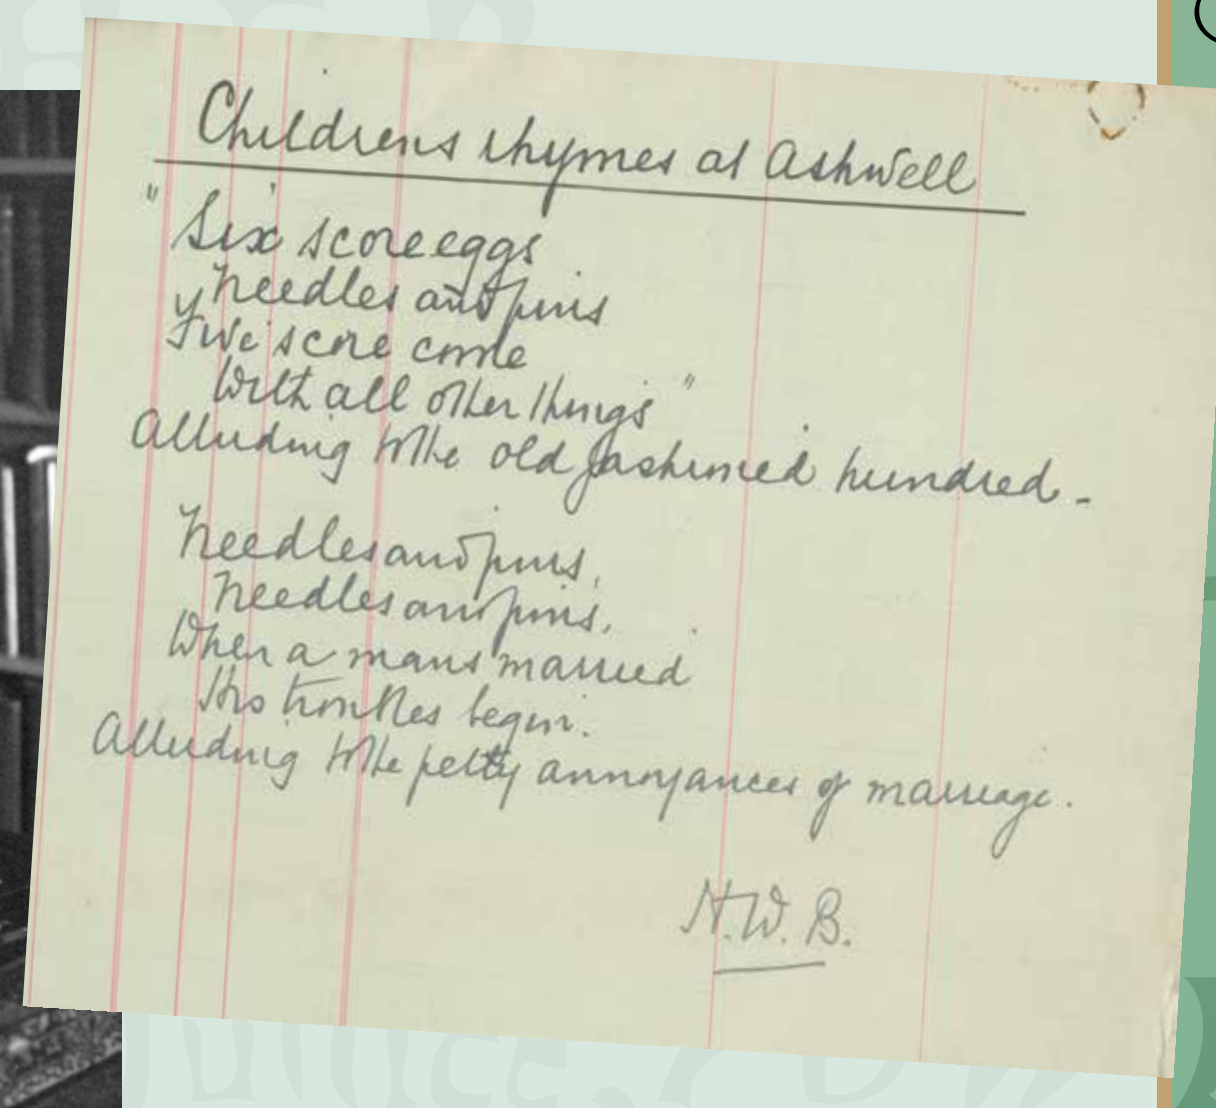 Childrens rhymes at Ashwell
"Six score eggs
Needles and pins
Five score come
With all other things"
Alluding to the old fashioned hundred -
Needles and pins,
Needles and pins,
When a mans married
His troubles begin.
Alluding to the petty annoyances of marriage.
H.W.B.